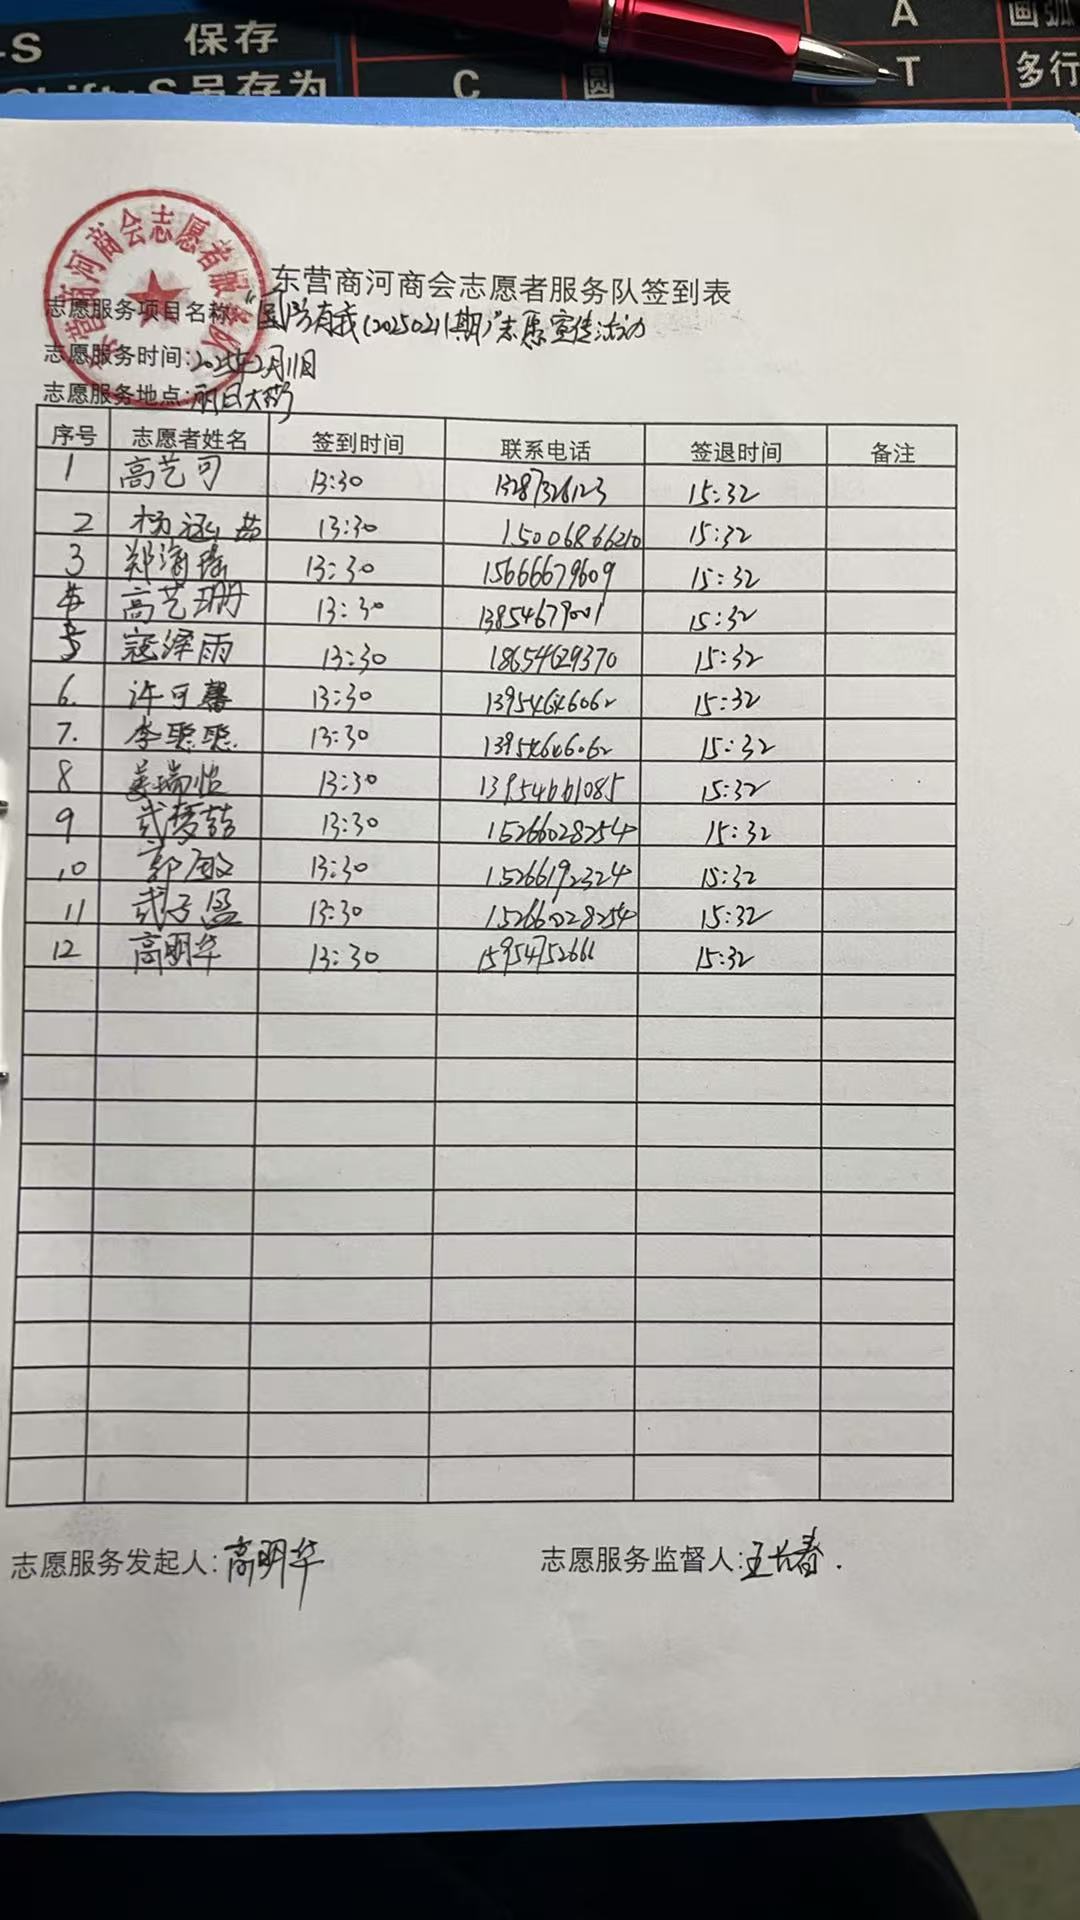 -S 保存
Shift+S 另存为
C 圆
A 画弧
T 多行
东营商河商会志愿者服务队
东营商河商会志愿者服务队签到表
志愿服务项目名称:"国防有我(20250211期)"志愿宣传活动
志愿服务时间:2025年2月11日
志愿服务地点:丽日大街
序号 志愿者姓名 签到时间 联系电话 签退时间 备注
1 高艺可 13:30 13287326123 15:32
2 杨涵茹 13:30 15006866210 15:32
3 郑清瑶 13:30 15666679609 15:32
4 高艺珊 13:30 13854679001 15:32
5 寇泽雨 13:30 18654629370 15:32
6. 许可馨 13:30 13954646062 15:32
7. 李聪聪 13:30 13954646062 15:32
8 姜瑞怡 13:30 13954661085 15:32
9 武梦喆 13:30 15266028254 15:32
10 郭敏 13:30 15266192324 15:32
11 武子盈 13:30 15266028254 15:32
12 高明华 13:30 15954752661 15:32
志愿服务发起人:高明华 志愿服务监督人:王长春.